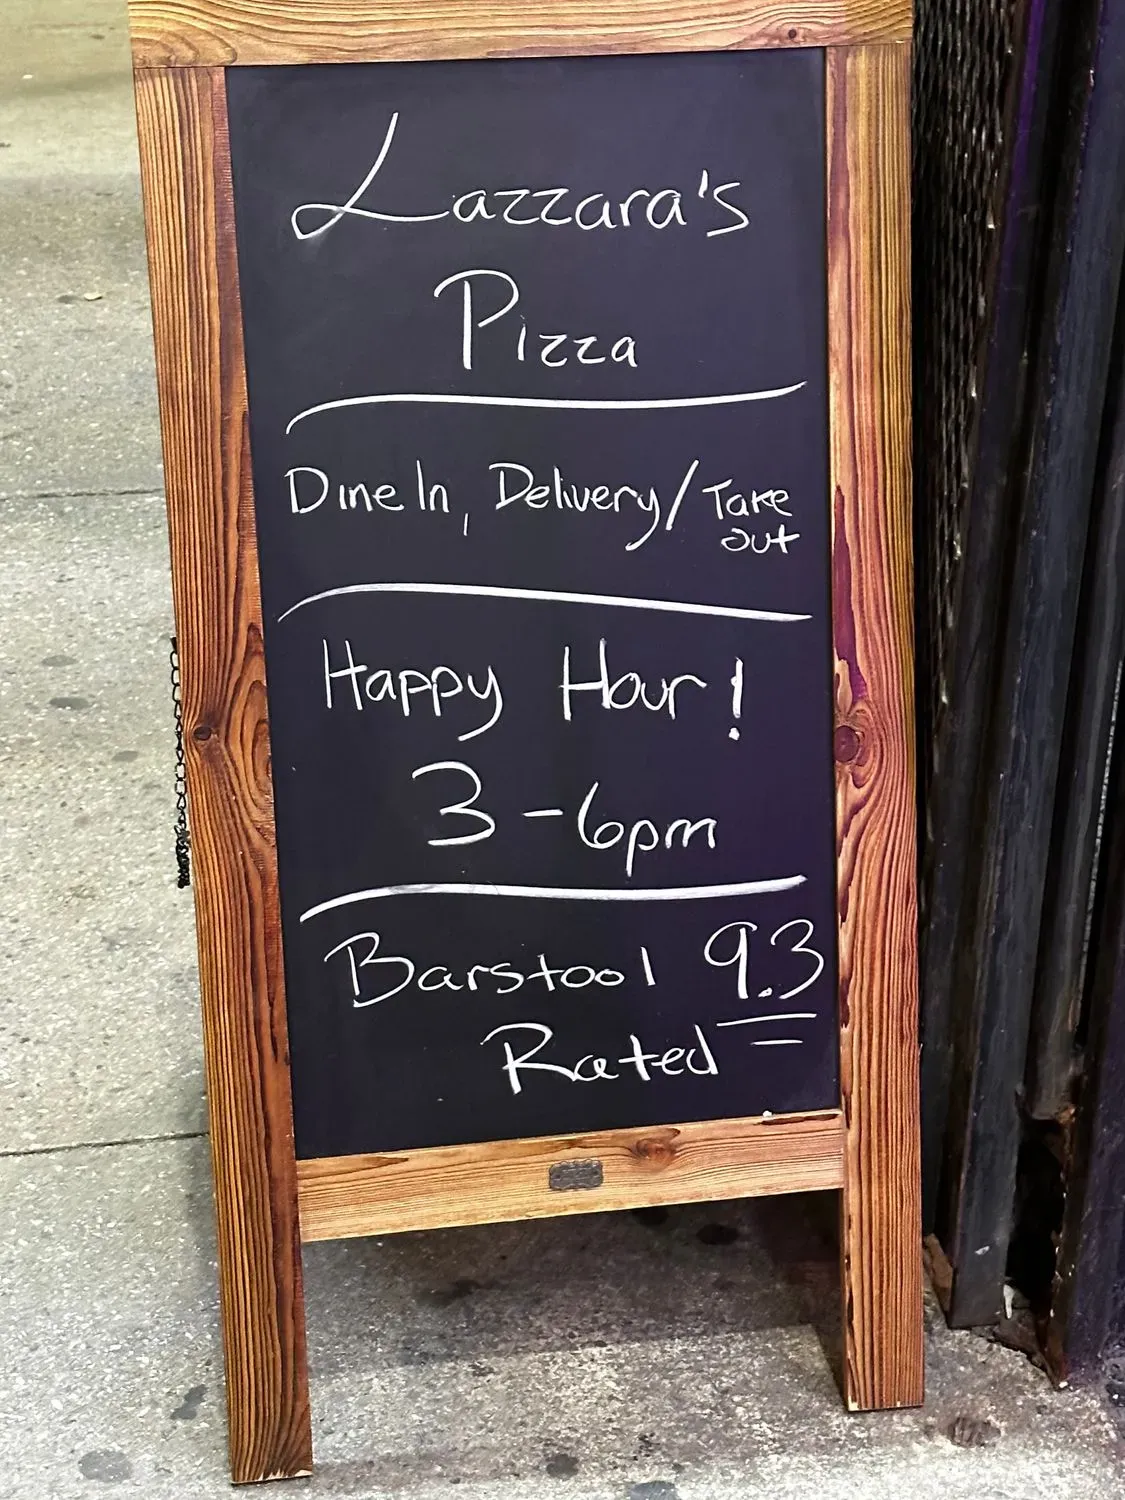 Lazzara's
Pizza
Dine In, Delivery/Take
out
Happy Hour!
3-6pm
Barstool 9.3
Rated